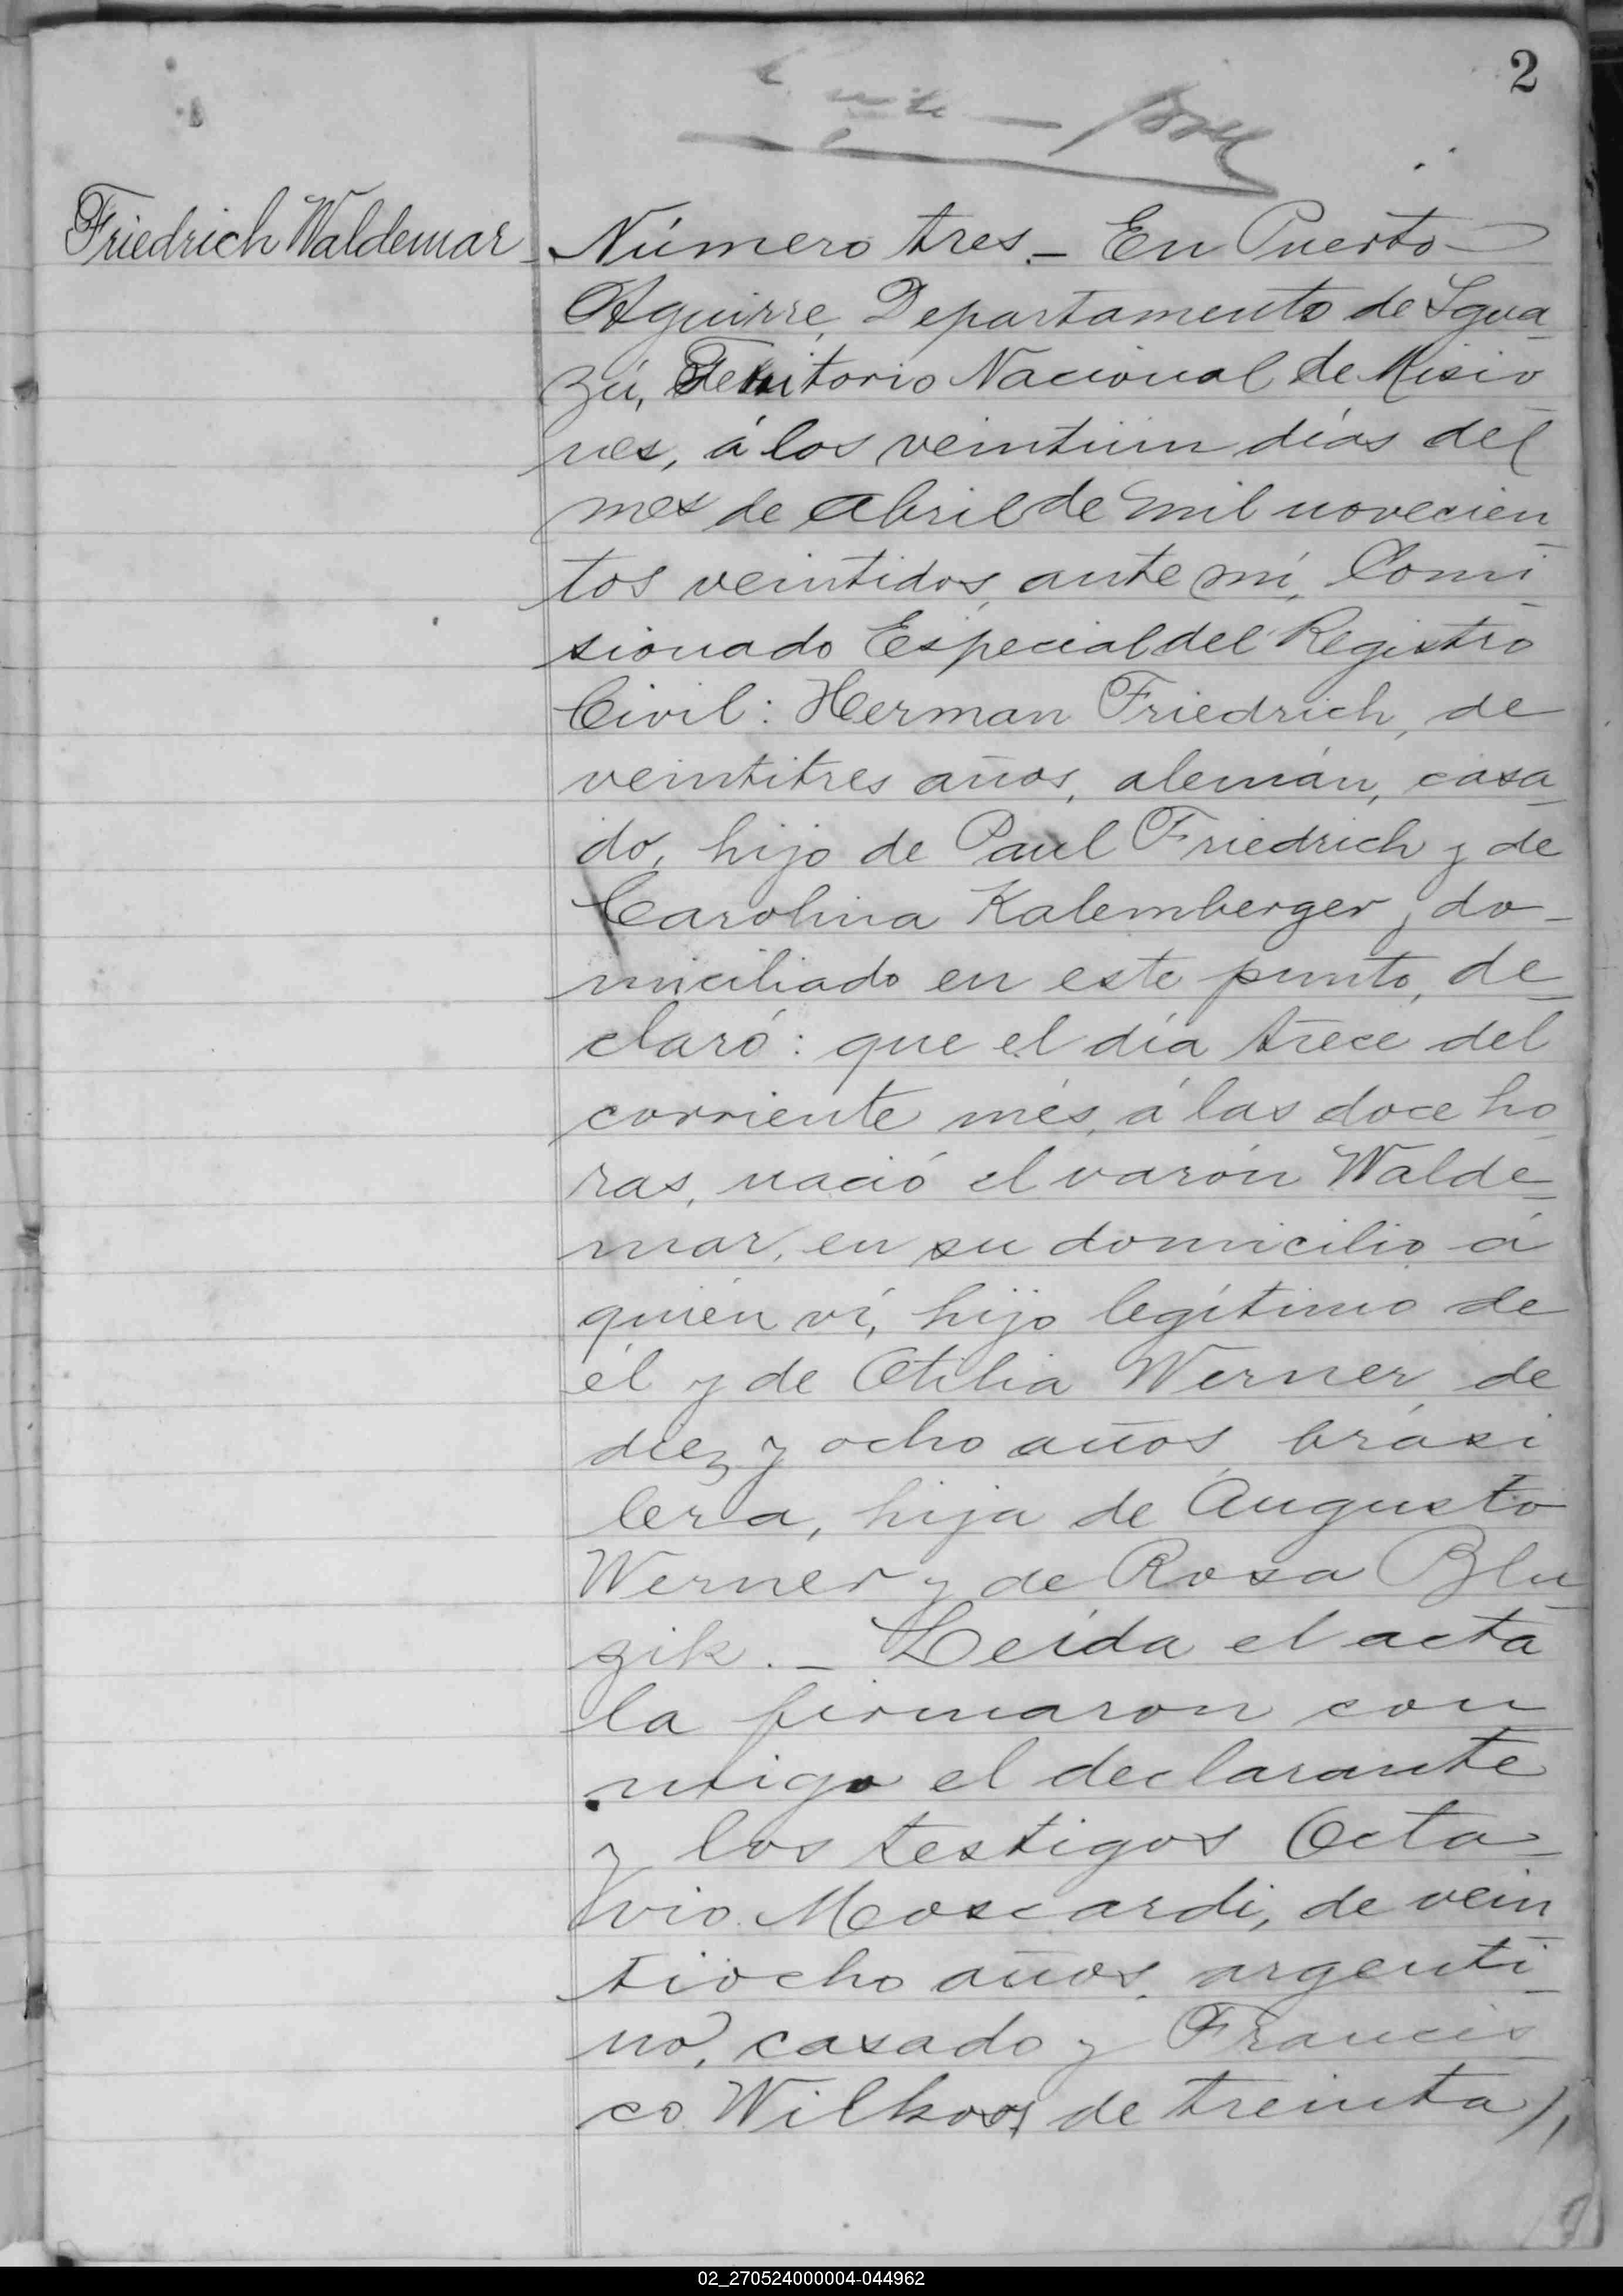 2
Friedrich Waldemar
Número tres.— En Puerto
Aguirre, Departamento de Igua
zú, Territorio Nacional de Misio
nes, á los veintiun días del
mes de Abril de mil novecien
tos veintidos, ante mí, Comi
sionado Especial del Registro
Civil: Herman Friedrich, de
veintitres años, alemán, casa
do, hijo de Paul Friedrich y de
Carolina Kalemberger, do-
miciliado en este punto, de
claró: que el día trece del
corriente més, á las doce ho
ras, nació el varón Walde
mar, en su domicilio á
quién ví, hijo legítimo de
él y de Otilia Werner, de
diez y ocho años, brasi
lera, hija de Augusto
Werner y de Rosa Blu
zik.— Leída el acta
la firmaron con
migo el declarante
y los testigos Octa
vio Moscardi, de vein
tiocho años, argenti
no, casado y Francis
co Wilkoos, de treinta //
02_270524000004-044962